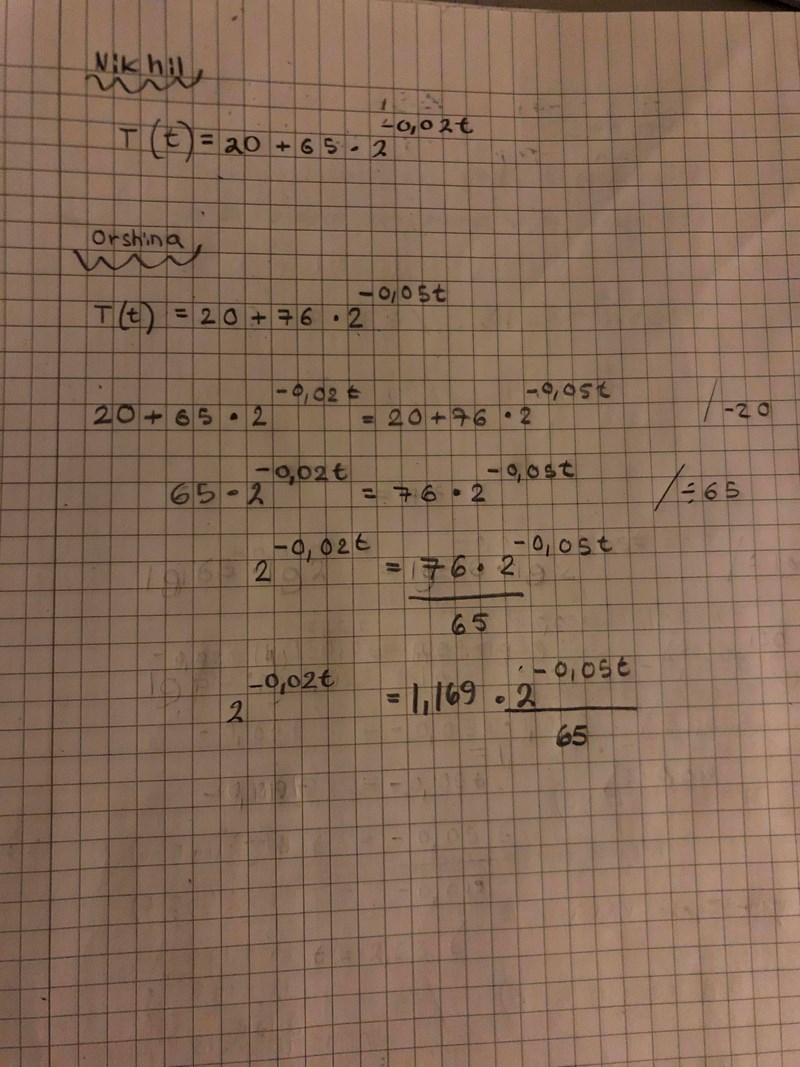 Nikhil
T(t) = 20 + 65 · 2^-0,02t
Orshina
T(t) = 20 + 76 · 2^-0,05t
20 + 65 · 2^-0,02t = 20 + 76 · 2^-0,05t /-20
65 · 2^-0,02t = 76 · 2^-0,05t /÷65
2^-0,02t = 76 · 2^-0,05t
65
2^-0,02t = 1,169 · 2^-0,05t
65